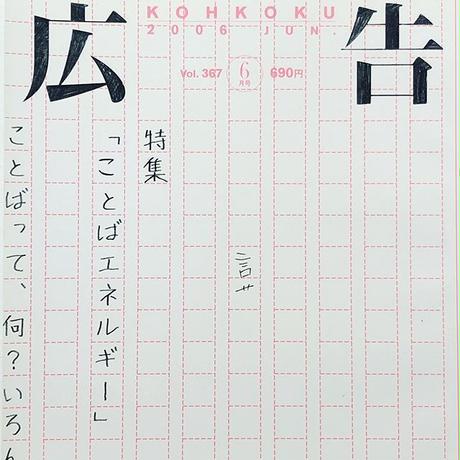 広告
KOHKOKU
2006 JUN.
Vol. 367 6月号 690円
特集
「ことばエネルギー」
ことばって、何?いろん